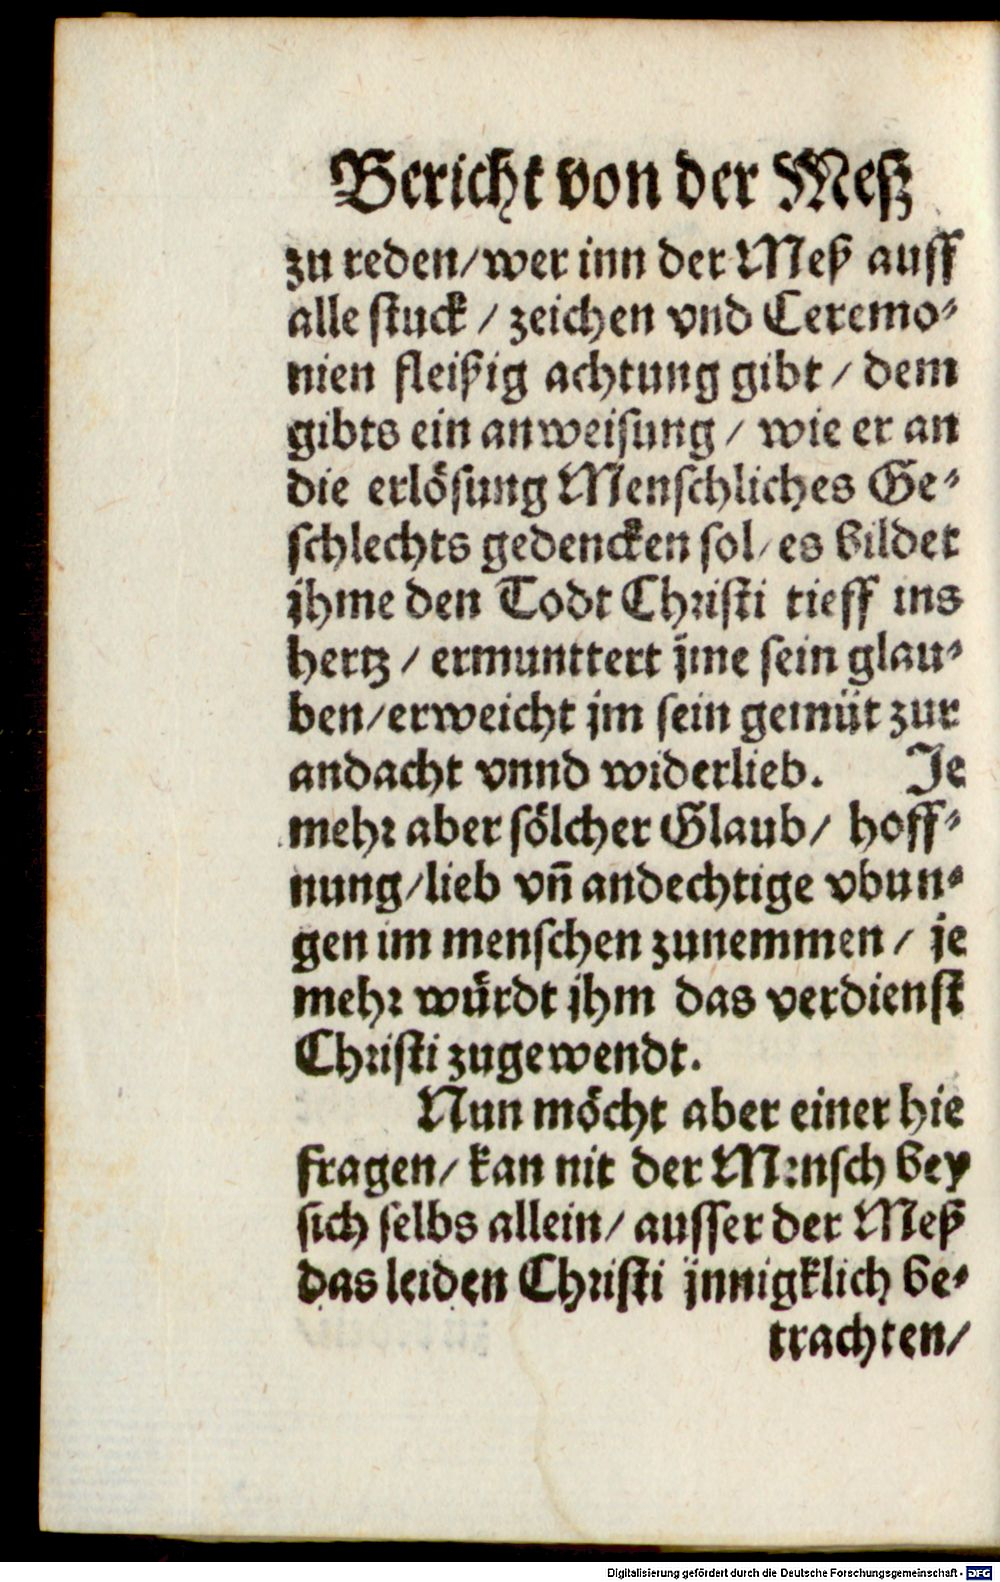 Bericht von der Meß
zu reden/wer inn der Meß auff
alle stuck / zeichen vnd Ceremo-
nien fleißig achtung gibt / dem
gibts ein anweisung / wie er an
die erlösung Menschliches Ge-
schlechts gedencken sol/es bildet
jhme den Todt Christi tieff ins
hertz / ermunttert jme sein glau-
ben/erweicht jm sein gemüt zur
andacht vnnd widerlieb. Je
mehr aber sölcher Glaub/ hoff-
nung/lieb vñ andechtige vbun-
gen im menschen zunemmen / je
mehr würdt jhm das verdienst
Christi zugewendt.
Nun möcht aber einer hie
fragen/ kan nit der Mensch bey
sich selbs allein/ ausser der Meß
das leiden Christi jnnigklich be-
trachten/
Digitalisierung gefördert durch die Deutsche Forschungsgemeinschaft - DFG